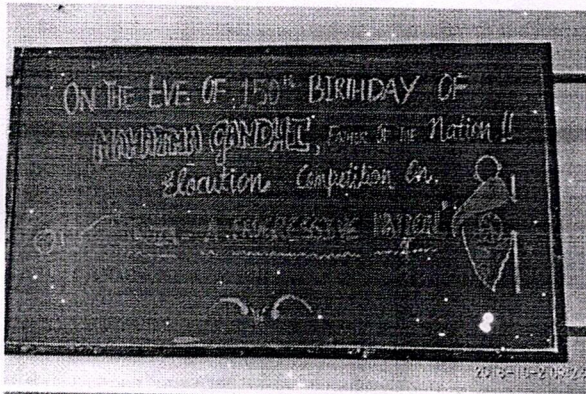 ON THE EVE OF 150th BIRTHDAY OF
MAHATMA GANDHI, FATHER OF THE Nation !!
Elocution Competition On.
A PROGRESSIVE NATION"